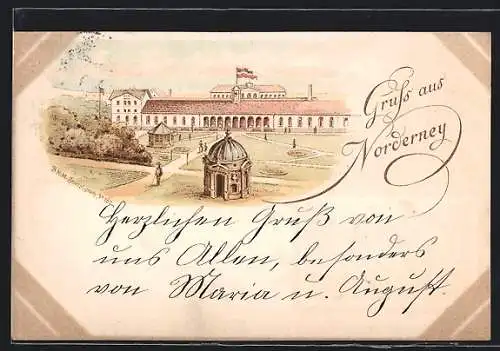 Gruss aus
Norderney
Herzlichen Gruß von
uns Allen, besonders
von Maria u. August.